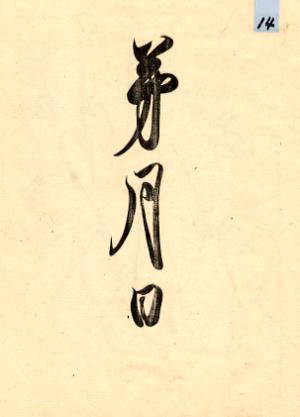 14
前月日